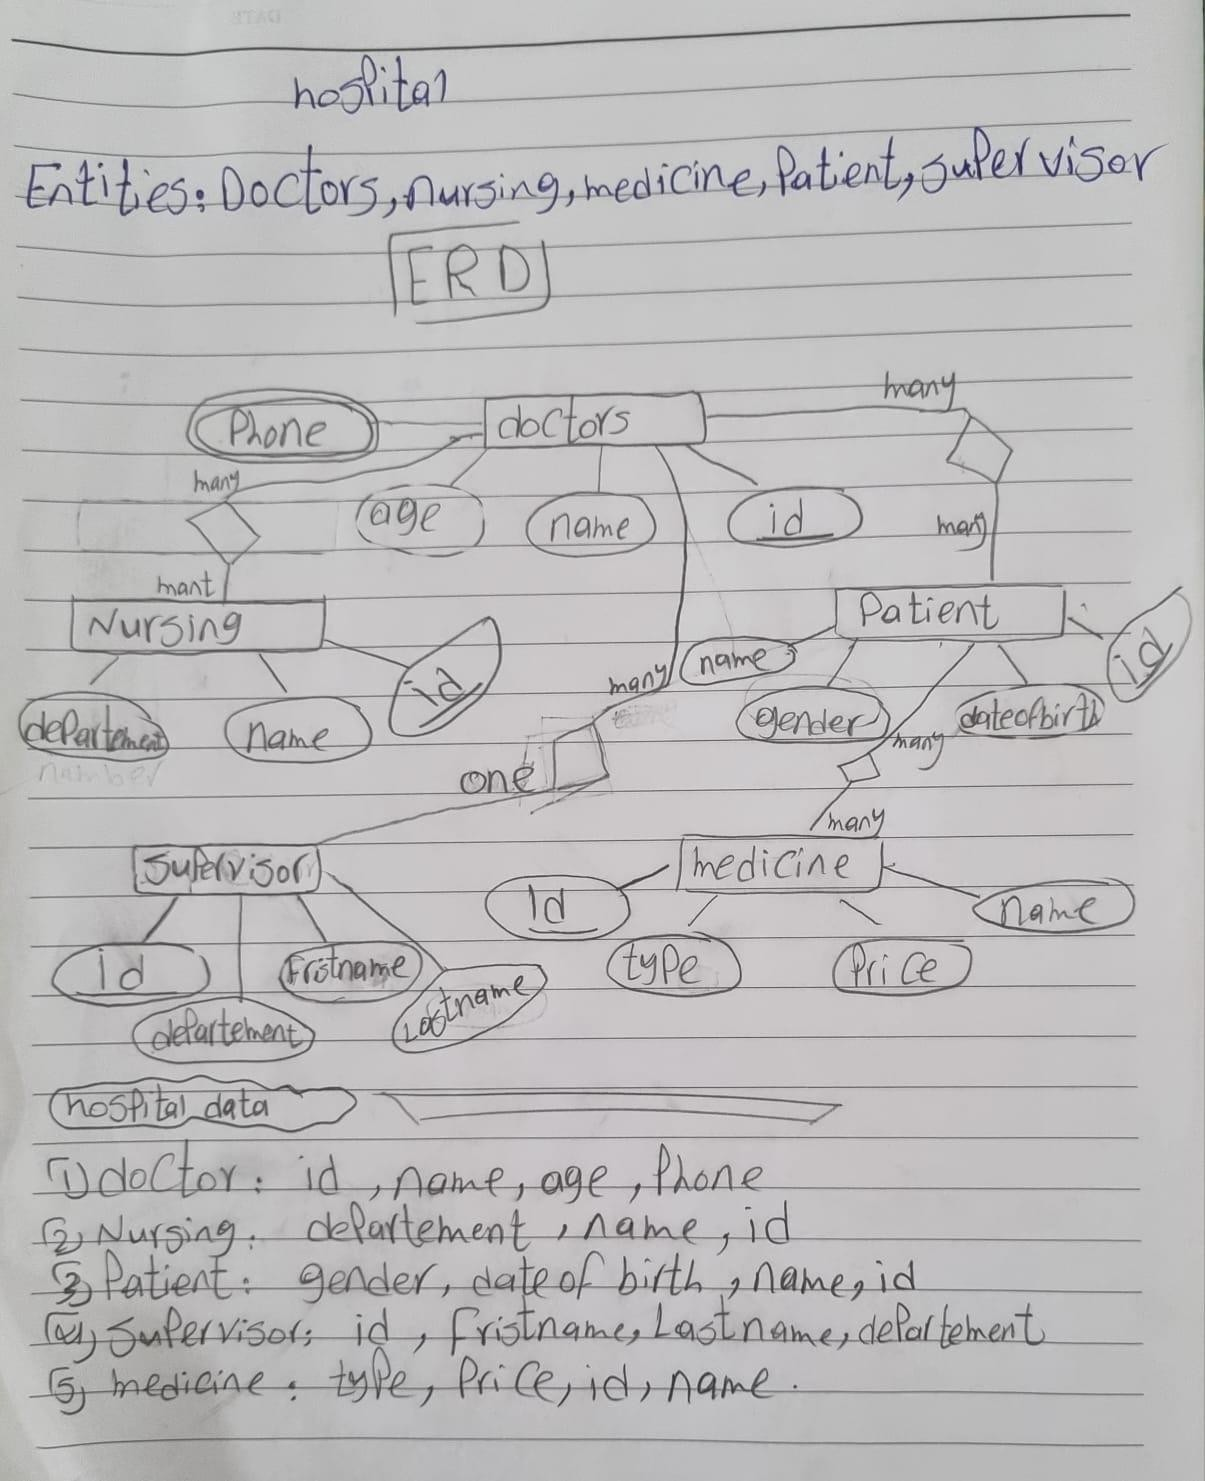 DATE
hospital
Entities: Doctors, nursing, medicine, Patient, supervisor
ERD
many
Phone
doctors
many
age
name
id
many
mant
Nursing
Patient
id
name
id
many
departement
name
gender
dateofbirth
number
one
many
many
supervisor
medicine
Id
name
id
Fristname
type
Price
Lastname
departement
hospital data
1) doctor: id, name, age, Phone
2) Nursing: departement, name, id
3) Patient: gender, date of birth, name, id
4) Supervisor: id, fristname, Lastname, departement
5) medicine: type, Price, id, name.